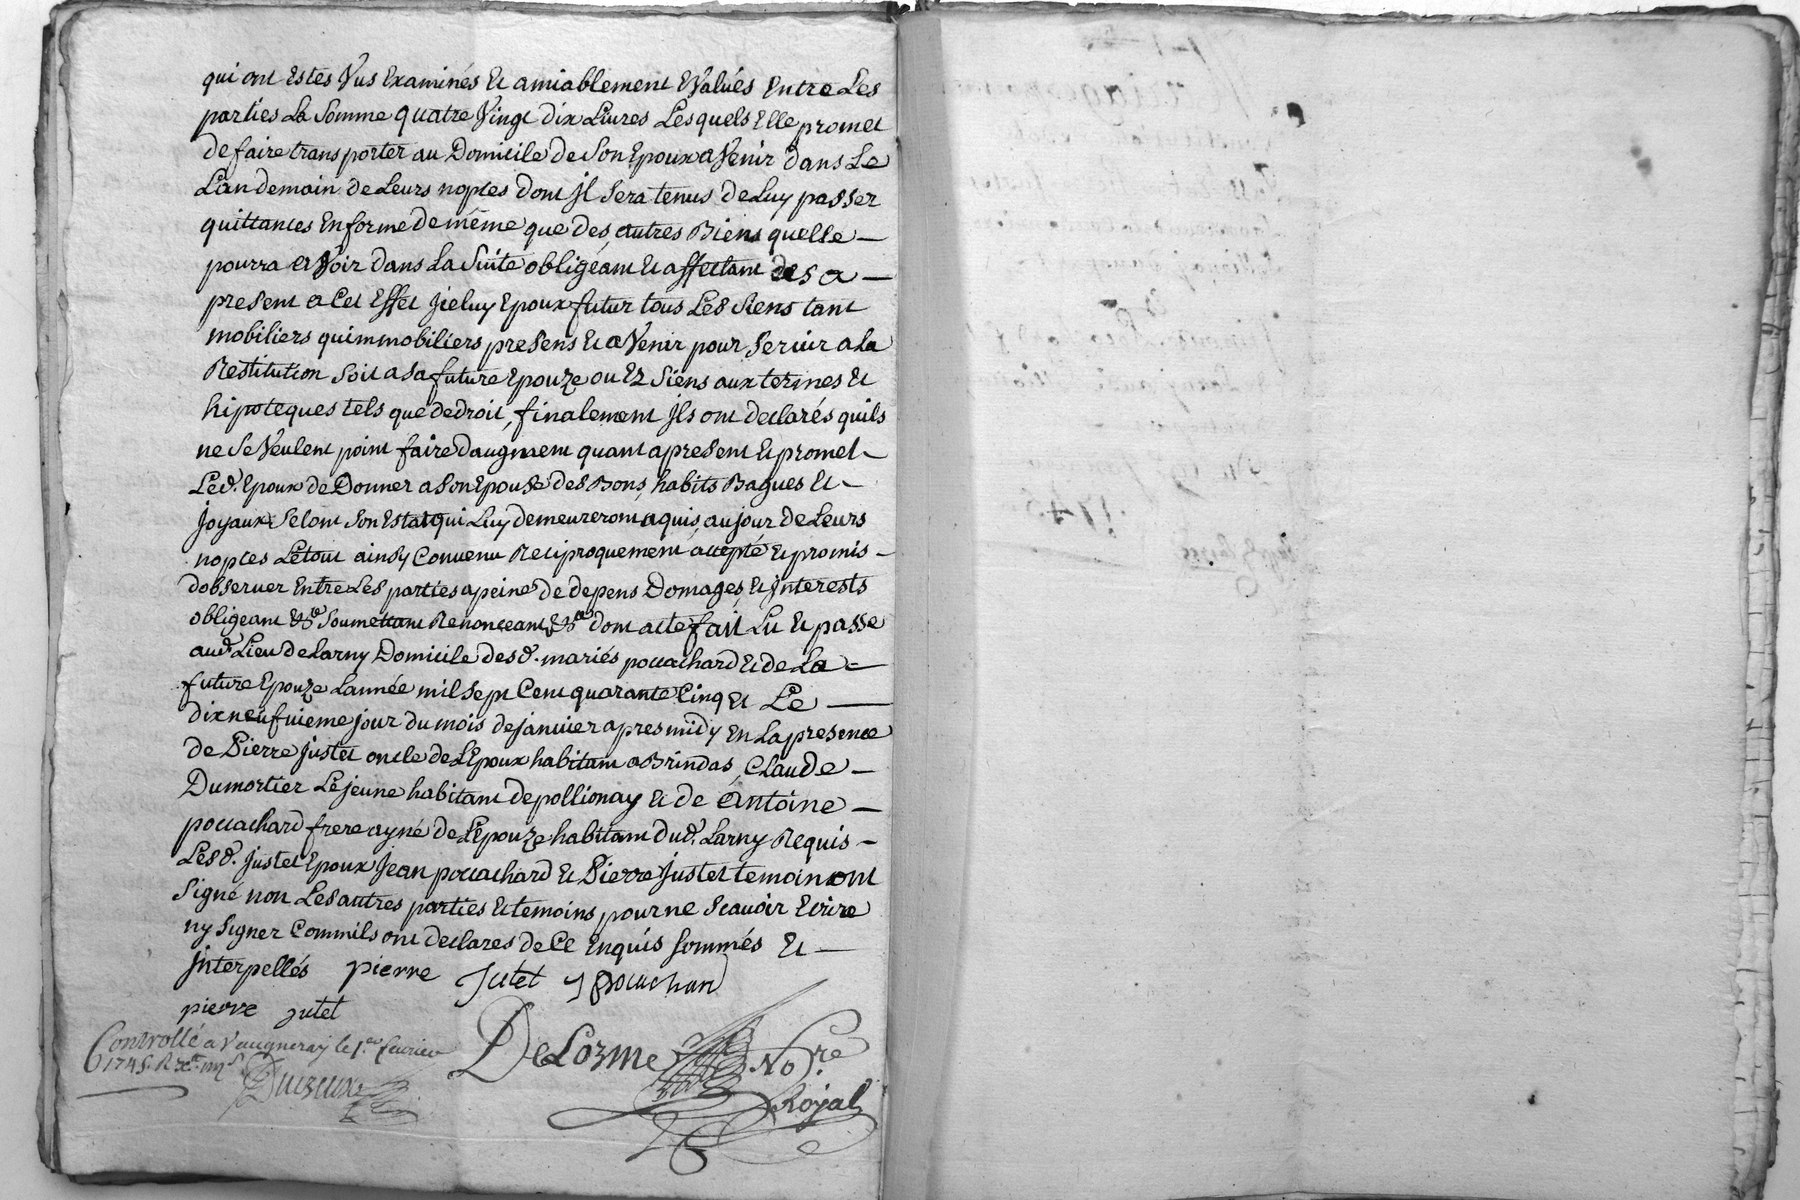 qui ont Estés Vus Examinés Et amiablement Evalués Entre Les
parties La Somme quatre Vingt dix Livres Lesquels Elle promet
de faire transporter au Domicile de Son Epoux a Venir dans Le
Landemain de Leurs noptes dont jl Sera tenus de Luy passer
quittances En forme de même que des autres Biens quelle —
pourra avoir dans La Suite obligeant Et affectant des a —
present a Cet Effet jceluy Epoux futur tous Les Siens tant
mobiliers quimmobiliers presens Et a Venir pour Servir a La
Restitution Soit a Sa future Epouze ou Ez Siens aux termes Et
hipoteques tels que de droit, finalement jls ont declarés quils
ne Se Veulent point faire Daugment quant a present Et promet –
Led. Epoux de Donner a Son Epouse des Bons habits Bagues Et –
joyaux Selont Son Estat qui Luy demeureront aquis au jour de Leurs
noptes Le tout ainsy Convenu Reciproquement accepté Et promis –
dobserver Entre Les parties a peine de depens Domages Et jnterests
obligeant &ca Soumettant Renonceant &ca dont acte fait Lu Et passé
aud. Lieu de Larny Domicile desd. mariés pouachard Et de La –
future Epouze Lannée mil Sept Cent quarante Cinq Et Le —
dixneufuieme jour du mois de janvier apres midy En La presence
de Pierre justet oncle de LEpoux habitant a Brindas, Claude –
Dumortier Le jeune habitant de pollionay Et de Antoine –
pouachard frere ayné de LEpouze habitant dud. Larny Requis –
Lesd. justet Epoux jean pouachard Et Pierre justet temoin ont
Signé non Les autres parties Et temoins pour ne Scavoir Ecrire
ny Signer Commils ont declares de Ce Enquis Sommés Et —
jnterpellés pierre Jutet j pouachard
pierre jutet
Controllé a Vaugneray le 1er fevrier
1745. R
DeLorme No.re
Royal